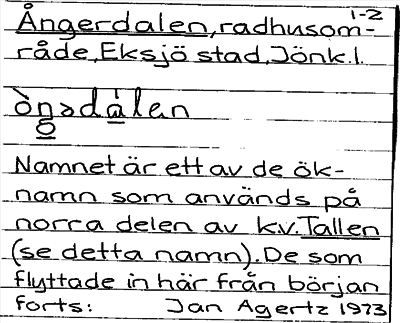 1-2
Ångerdalen, radhusom-
råde, Eksjö stad, Jönk.l.
Namnet är ett av de ök-
namn som används på
norra delen av kv. Tallen
(se detta namn). De som
flyttade in här från början
forts: Jan Agertz 1973